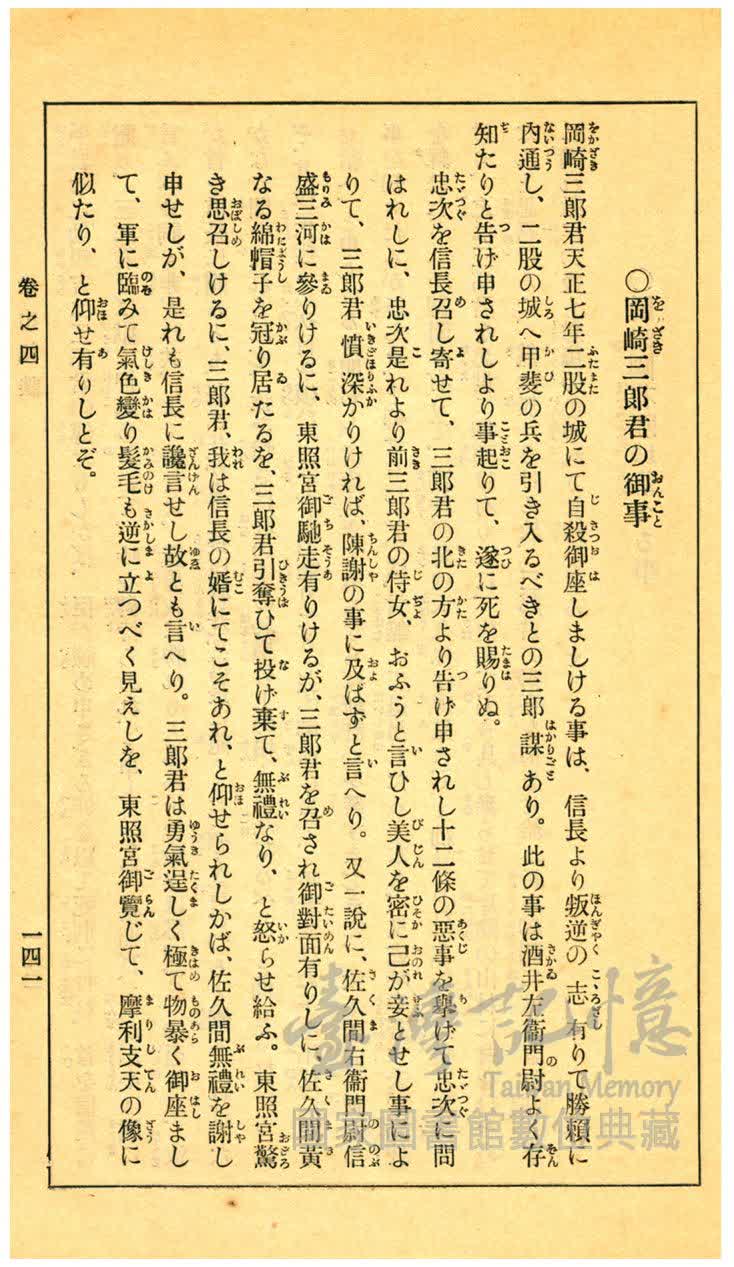 ○岡崎三郎君の御事
岡崎三郎君天正七年二股の城にて自殺御座しましける事は、信長より叛逆の志有りて勝賴に
內通し、二股の城へ甲斐の兵を引き入るべきとの三郎謀あり。此の事は酒井左衞門尉よく存
知たりと告げ申されしより事起りて、遂に死を賜りぬ。
忠次を信長召し寄せて、三郎君の北の方より告げ申されし十二條の惡事を擧げて忠次に問
はれしに、忠次是れより前三郎君の侍女、おふうと言ひし美人を密に己が妾とせし事によ
りて、三郎君憤深かりければ、陳謝の事に及ばずと言へり。又一說に、佐久間右衞門尉信
盛三河に參りけるに、東照宮御馳走有りけるが、三郎君を召され御對面有りしに、佐久間黃
なる綿帽子を冠り居たるを、三郎君引奪ひて投げ棄て、無禮なり、と怒らせ給ふ。東照宮驚
き思召しけるに、三郎君、我は信長の婿にてこそあれ、と仰せられしかば、佐久間無禮を謝し
申せしが、是れも信長に讒言せし故とも言へり。三郎君は勇氣逞しく極て物暴く御座まし
て、軍に臨みて氣色變り髮毛も逆に立つべく見えしを、東照宮御覽じて、摩利支天の像に
似たり、と仰せ有りしとぞ。
卷之四
一四一
臺灣記憶
Taiwan Memory
國家圖書館數位典藏